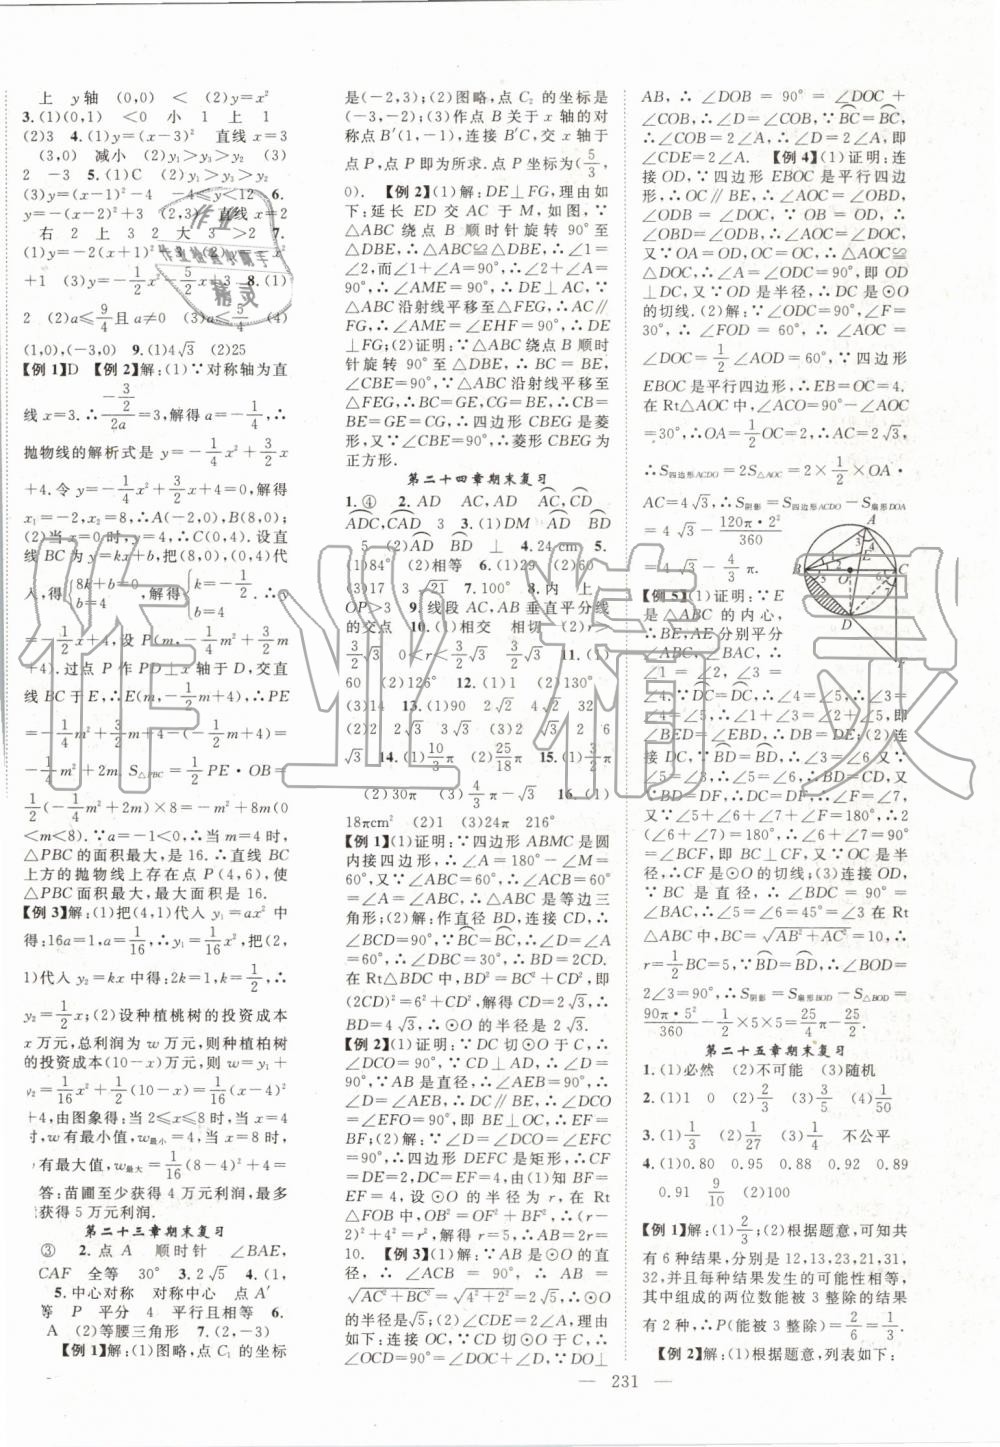 上　y轴　(0,0)　<　(2)y=x²
3.(1)(0,1)　<0　小　1　上　1
(2)3　4.(1)y=(x-3)²　直线x=3
(3,0)　减小　(2)y₁>y₃>y₂　(3)
2　-3　5.(1)C　(2)y₁>y₂>y₃
(3)y=(x-1)²-4　-4≤y<12　6.
y=-(x-2)²+3　(2,3)　直线x=2
右　2　上　3　2　大　3　>2　7.
+1　(3)y=-1/2x²-5/2x+3　8.(1)
2　(2)a≤9/4且a≠0　(3)a≤5/4　(4)
(1,0),(-3,0)　9.(1)4√3　(2)25
【例1】D　【例2】解:(1)∵对称轴为直
线x=3.∴-(3/2)/2a=3,解得a=-1/4,∴
抛物线的解析式是y=-1/4x²+3/2x
+4.令-1/4x²+3/2x+4=0,解得
x₁=-2,x₂=8,∴A(-2,0),B(8,0);
(2)当x=0时,y=4,∴C(0,4).设直
线BC为y=kx+b,把(8,0)(0,4)代
入,得{8k+b=0 b=4,解得{k=-1/2 b=4,∴y=
-1/2x+4,设P(m,-1/4m²+3/2m
+4).过点P作PD⊥x轴于D,交直
线BC于E,∴E(m,-1/2m+4),∴PE
=-1/4m²+3/2m+4-(-1/2m+4)=
-1/4m²+2m,S△PBC=1/2PE·OB=
1/2(-1/4m²+2m)×8=-m²+8m(0
<m<8).∵a=-1<0,∴当m=4时,
△PBC的面积最大,是16.∴直线BC
上方的抛物线上存在点P(4,6),使
△PBC面积最大,最大面积是16.
【例3】解:(1)把(4,1)代入y₁=ax²中
得:16a=1,a=1/16,∴y₁=1/16x²,把(2,
1)代入y₂=kx中得:2k=1,k=1/2,∴
y₂=1/2x;(2)设种植桃树的投资成本
x万元,总利润为w万元,则种植柏树
的投资成本(10-x)万元,则w=y₁+
y₂=1/16x²+1/2(10-x)=1/16(x-4)²
+4,由图象得:当2≤x≤8时,当x=4
时,w有最小值,w最小=4,当x=8时,
w有最大值,w最大=1/16(8-4)²+4=5.
答:苗圃至少获得4万元利润,最多
获得5万元利润.
第二十三章期末复习
③　2.点A　顺时针　∠BAE,
CAF　全等　30°　3.2√5　4.(1,
5.中心对称　对称中心　点A′
等　P　平分　4　平行且相等　6.
A　(2)等腰三角形　7.(2,-3)
【例1】解:(1)图略,点C₁的坐标
是(-2,3);(2)图略,点C₂的坐标是
(-3,-2);(3)作点B关于x轴的对
称点B′(1,-1),连接B′C,交x轴于
点P,点P即为所求.P坐标为(5/3,
0).　【例2】(1)解:DE⊥FG,理由如
下:延长ED交AC于M,如图,∵
△ABC绕点B顺时针旋转90°至
△DBE,∴△ABC≌△DBE,∴∠1=
∠2,而∠1+∠AME=∠2+∠DBE,
∴∠AME=∠DBE=90°,∵
△ABC沿射线平移至△FEG,∴AC∥
FG,∴∠AME=∠EHF=90°,∴DE
⊥FG;(2)证明:∵△ABC绕点B顺时
针旋转90°至△DBE,∴BC=BE,
∠CBE=90°,∵△ABC沿射线平移至
△FEG,∴BC=GE,CG=BE,∴BC
=BE=GE=CG,∴四边形CBEG是菱
形,又∵∠CBE=90°,∴菱形CBEG为
正方形.
第二十四章期末复习
1.④　2.AD　AC,AD　AC,CD
ADC,CAD　3　3.(1)DM　AD　BD
5　(2)AD　BD　⊥　4.24cm　5.
(1)84°　(2)相等　6.(1)29　(2)60
(3)17　3　√21　7.100°　8.内　上
OP>3　9.线段AC,AB垂直平分线
的交点　10.(1)相交　相切　(2)r=
3/2√3　0<r<3/2√3　r>3/2√3　11.(1)
60　(2)126°　12.(1)1　(2)130°
(3)14　13.(1)90　2√2　4√2　32
(2)2　2√3　3√3　6√3　(3)2　2
√3　14.(1)10/3π　(2)25/18π　15.(1)π/3
(2)30π　(3)4/3π-√3　16.(1)
18πcm²　(2)1　(3)24π　216°
【例1】(1)证明:∵四边形ABMC是圆
内接四边形,∴∠A=180°-∠M=
60°,又∵∠ABC=60°,∴∠ACB=
60°,∴∠A=∠ABC,∴△ABC是等边三
角形;(2)解:作直径BD,连接CD,∴
∠BCD=90°,∵BC=BC,∴∠D=∠A=
60°,∴∠DBC=30°,∴BD=2CD.
在Rt△BDC中,BD²=BC²+CD²,即
(2CD)²=6²+CD²,解得CD=2√3,
∴BD=4√3,∴⊙O的半径是2√3.
【例2】(1)证明:∵DC切⊙O于C,∴
∠DCO=90°,∵CD⊥AD,∴∠D=
90°,∵AB是直径,∴∠AEB=90°,∴
∠AEB=∠D,∴DC∥BE,∴∠DCO
=∠EFO=90°,即BE⊥OC,∴EF=
BF;(2)解:∵∠D=∠DCO=∠EFC
=90°,∴四边形DEFC是矩形,∴CF
=DE=2,EF=DC=4,由(1)知EF
=BF=4.设⊙O的半径为r,在Rt
△FOB中,OB²=OF²+BF²,∴(r-
2)²+4²=r²,解得r=5,∴AB=2r=
10.　【例3】(1)解:∵AB是⊙O的直
径,∴∠ACB=90°,∴AB=
√AC²+BC²=√4²+2²=2√5,∴⊙O
的半径为√5;(2)∠CDE=2∠A,理由
如下:连接OC,∵CD切⊙O于C,∴
∠OCD=90°=∠DOC+∠D,∵DO⊥
AB,∴∠DOB=90°=∠DOC+
∠COB,∴∠COB=∠D,∵BC=BC,∴
∠COB=2∠A,∴∠D=2∠A,即
∠CDE=2∠A.　【例4】(1)证明:连
接OD,∵四边形EBOC是平行四边
形,∴OC∥BE,∴∠AOC=∠OBD,
∠ODB=∠DOC,∵OB=OD,∴
∠OBD=∠ODB,∴∠DOC=∠AOC.
又∵OC=OC,OA=OD,∴△AOC≌
△DOC,∴∠ODC=∠OAC=90°,即OD
⊥DC,又∵OD是半径,∴DC是⊙O
的切线.(2)解:∵∠ODC=90°,∠F=
30°,∴∠FOD=60°,∴∠AOC=
∠DOC=1/2∠AOD=60°.∵四边形
EBOC是平行四边形,∴EB=OC=4.
在Rt△AOC中,∠ACO=90°-∠AOC
=30°,∴OA=1/2OC=1/2×4=2,∴
∴S四边形ACDO=2S△AOC=2×1/2×OA·
AC=4√3,∴S阴影=S四边形ACDO-S扇形DOA
=4√3-120π·2²/360
=4√3-4/3π.
【例5】(1)证明:∵E
是△ABC的内心,
∴BE,AE分别平分
∠ABC,∠BAC,∴
∠1=∠2,∠3=
∠4,∵DC=DC,∴∠4=∠5,∴∠3=
∠5,∴∠1+∠3=∠2+∠5,即
∠BED=∠EBD,∴DB=DE;(2)连
接DC,∵BD=BD,∴∠3=∠6,又∵
∠5=∠3,∴∠5=∠6,∴BD=DC.又
∵BD=DF,∴DC=DF,∴∠F=∠7,
又∵∠5+∠6+∠7+∠F=180°,∴
∠6+∠7=1/2×180°=90°,∴∠6+∠7
=∠BCF,即BC⊥CF,又OC是半
径,∴CF是⊙O的切线;(3)连接OD,
∵BC是直径,∴∠BAC=90°,∠3=
∠BAC,∴∠5=1/2×90°=45°.在Rt
△ABC中,BC=√AB²+AC²=10,∴
r=1/2BC=5,∵BD=BD,∴∠BOD=
2∠3=90°,∴S阴影=S扇形BOD-S△BOD=
90π·5²/360-1/2×5×5=25/4π-25/2.
第二十五章期末复习
1.(1)必然　(2)不可能　(3)随机
2.(1)1　0　(2)2/3　(3)3/5　(4)1/50
3.(1)1/3　(2)1/27　(3)1/4　不公平
4.(1)0.80　0.95　0.88　0.92　0.89
0.91　9/10　(2)100
【例1】解:(1)2/3;(2)根据题意,可知共
有6种结果,分别是12,13,23,21,31,
32,并且每种结果发生的可能性相等,
其中组成的两位数能被3整除的结果
有2种,∴P(能被3整除)=2/6=1/3.
【例2】解:(1)根据题意,列表如下:
231